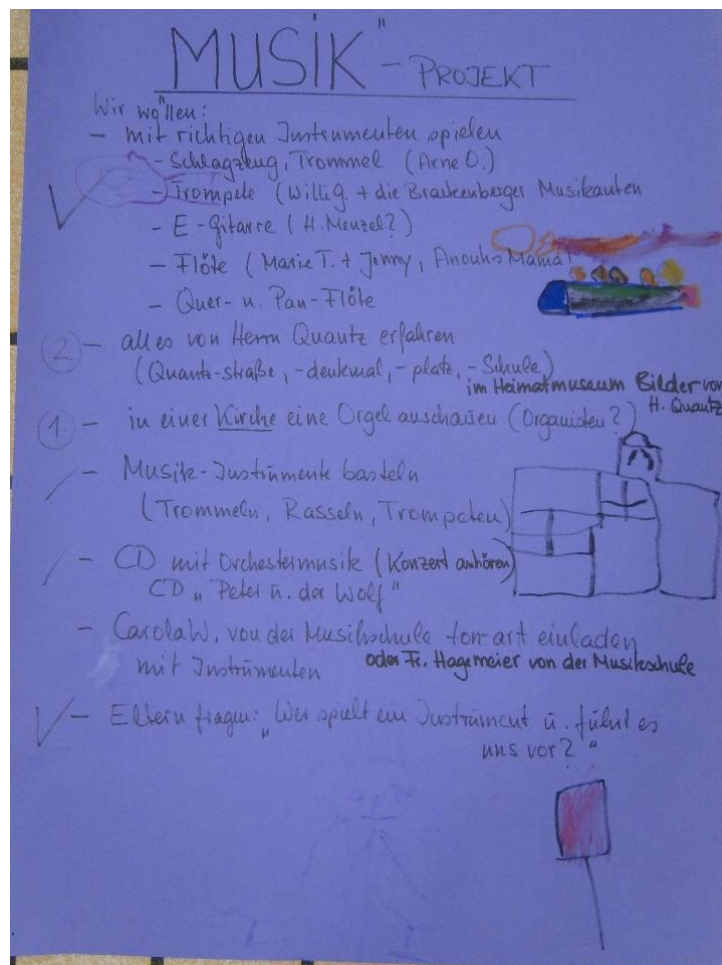 MUSIK" - PROJEKT
Wir wollen:
- mit richtigen Instrumenten spielen
- Schlagzeug, Trommel (Arne O.)
- Trompete (Willi G. + die Brackenberger Musikanten
- E-Gitarre (H. Menzel?)
- Flöte (Marie T. + Jenny, Anouks Mama)
- Quer- u. Pan-Flöte
2 - alles von Herrn Quantz erfahren
(Quantz-straße, -denkmal, -platz, -Schule)
im Heimatmuseum Bilder von
H. Quantz
1. - in einer Kirche eine Orgel anschauen (Organisten?)
- Musik-Instrumente basteln
(Trommeln, Rasseln, Trompeten)
- CD mit Orchestermusik (Konzert anhören)
CD "Peter u. der Wolf"
- Carola W. von der Musikschule ton-art einladen
mit Instrumenten oder Fr. Hagemeier von der Musikschule
- Eltern fragen: "Wer spielt ein Instrument u. führt es
uns vor?"